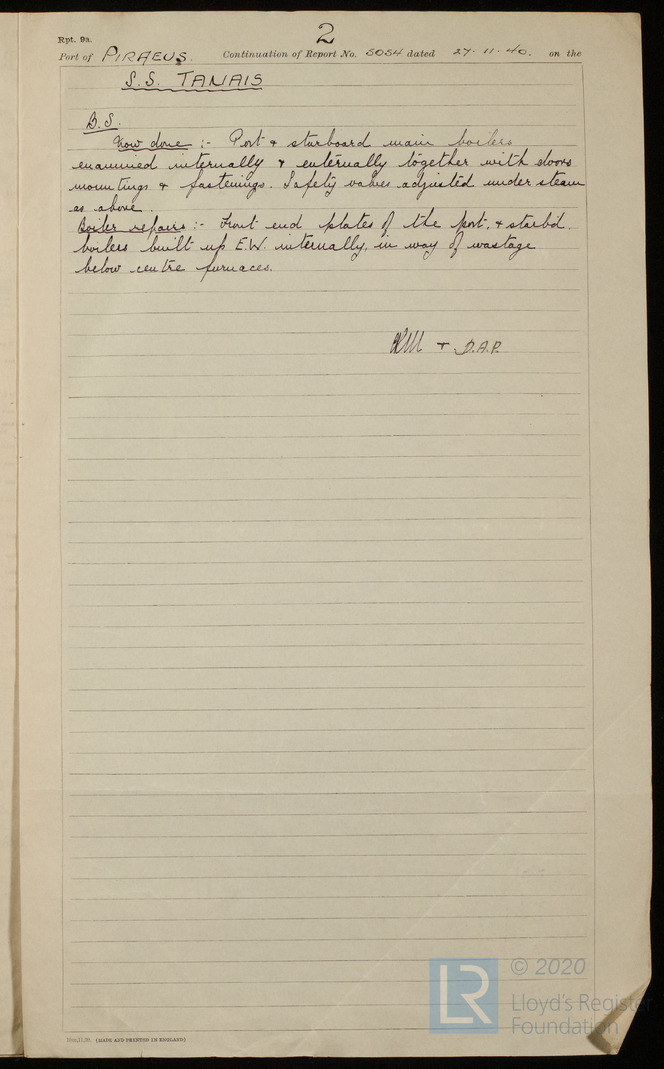 2
Rpt. 9a.
Port of PIRAEUS. Continuation of Report No. 5054 dated 27. 11. 40. on the
S.S. TANAIS
B.S.
Now done :- Port & starboard main boilers
examined internally & externally together with doors
mountings & fastenings. Safety valves adjusted under steam
as above.
Boiler repairs :- Front end plates of the port, & starbd.
boilers built up E.W. internally, in way of wastage
below centre furnaces.
& D.A.P.
(MADE AND PRINTED IN ENGLAND)
LR
© 2020
Lloyd's Register
Foundation